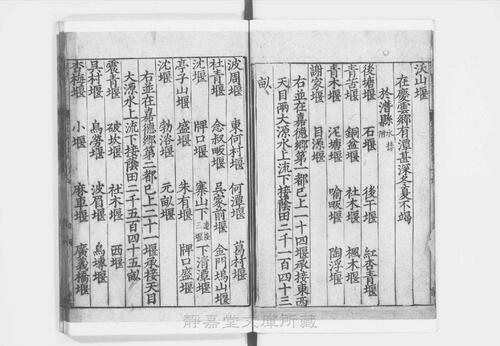 渓山堰
在慶雲郷有潭甚深冬夏不竭
於潛縣水利附
後塘堰 石堰 後干堰 紅杏青堰
青苦堰 銅盆堰 社木堰 楓木堰
青木堰 泥塘堰 喻畈堰 陶浮堰
謝家堰 目源堰
右並在嘉德郷第一都已上一十四堰承接東西
天目兩大源水上流下接蔭田二千二百四十三
畝
波周堰 東何村堰 何潭堰 葛村堰
社青堰 念叔畈堰 吳家前堰 金門塢山堰
沈堰 牌口堰 寨山下三堰 下清潭堰
亭子山堰 盛堰 朱有堰 牌口盛堰
沈堰 勃洛堰 元畝堰
右並在嘉德郷第二都已上二十一堰承接天目
大源水上流下接蔭田二千五百四十五畝
震青堰 破坎堰 社木堰 西堰
具村堰 烏勞堰 波眉堰 烏墟堰
杏梅堰 小堰 麻車堰 廣義橋堰
静嘉堂文庫所蔵